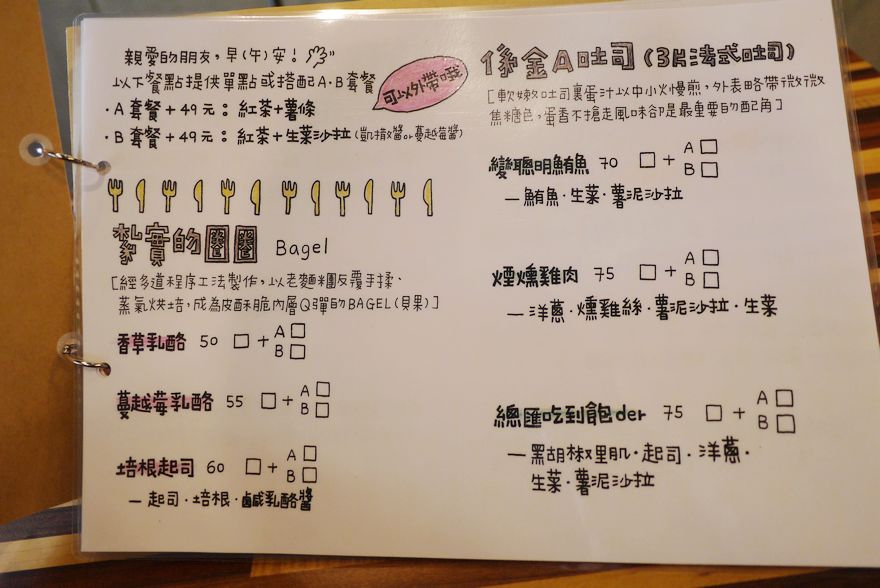 親愛的朋友,早(午)安!
以下餐點提供單點或搭配A.B套餐
·A套餐+49元:紅茶+薯條
·B套餐+49元:紅茶+生菜沙拉(凱撒醬or蔓越莓醬)
可以外帶哦
紮實的圈圈 Bagel
[經多道程序工法製作,以老麵糰反覆手揉、
蒸氣烘培,成為皮酥脆內層Q彈的BAGEL(貝果)]
香草乳酪 50 □+A□
B□
蔓越莓乳酪 55 □+A□
B□
培根起司 60 □+A□
B□
—起司·培根·鹹乳酪醬
係金A吐司(3片法式吐司)
[軟嫩吐司裹蛋汁以中小火慢煎,外表略帶微微
焦糖色,蛋香不搶走風味卻是最重要的配角]
變聰明鮪魚 70 □+A□
B□
—鮪魚·生菜·薯泥沙拉
煙燻雞肉 75 □+A□
B□
—洋蔥·燻雞絲·薯泥沙拉·生菜
總匯吃到飽der 75 □+A□
B□
—黑胡椒里肌·起司·洋蔥·
生菜·薯泥沙拉